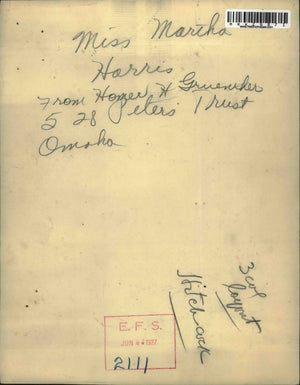 Miss Martha
Harris
From Homer H Gruenther
528 Peters Trust
Omaha
3 col
layout
Hitchcock
E. F. S.
JUN 1927
2111